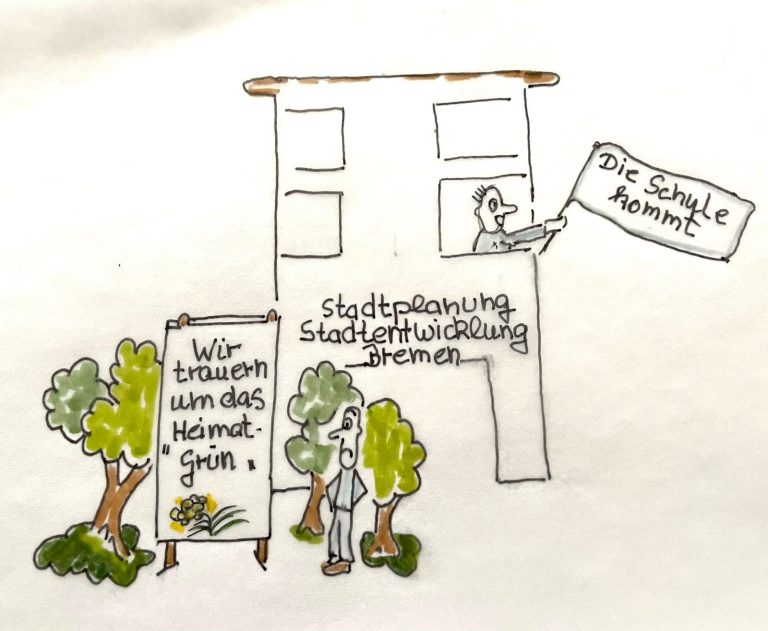 Die Schule
kommt
Stadtplanung
Stadtentwicklung
Bremen
Wir
trauern
um das
Heimat-
"Grün"